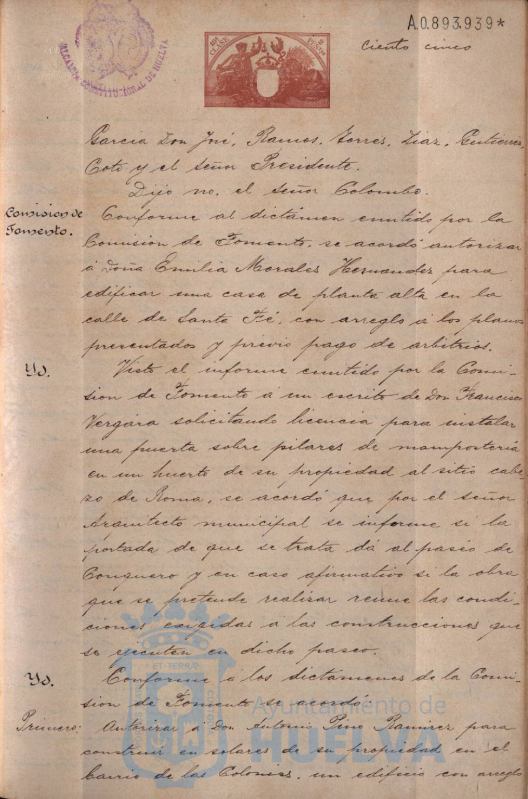 A.0.893.939*
ALCALDIA CONSTITUCIONAL DE HUELVA
10ª CLASE
Ciento cinco
Garcia Don José, Ramos, Torres, Diaz, Gutierrez,
Coto y el señor Presidente.
Dijo no, el señor Colombo.
Comision de Fomento.
Conforme al dictámen emitido por la
Comision de Fomento, se acordó autorizar
á Doña Emilia Morales Hernandez para
edificar una casa de planta alta en la
calle de Santa Fé, con arreglo á los planos
presentados y previo pago de arbitrios.
Yd.
Visto el informe emitido por la Comi-
sion de Fomento á un escrito de Don Francisco
Vergara solicitando licencia para instalar
una puerta sobre pilares de mamposteria
en un huerto de su propiedad al sitio cabe-
zo de Roma, se acordó que por el señor
Arquitecto municipal se informe si la
portada de que se trata dá al paseo de
Conquero y en caso afirmativo si la obra
que se pretende realizar reune las condi-
ciones exigidas á las construcciones que
se ejecuten en dicho paseo.
Yd.
Conforme á los dictámenes de la Comi-
sion de Fomento se acordó
Primero: Autorizar á Don Antonio Pino Ramirez para
construir en solares de su propiedad en el
barrio de las Colonias, un edificio con arreglo
ET TERRA
Ayuntamiento de
HUELVA